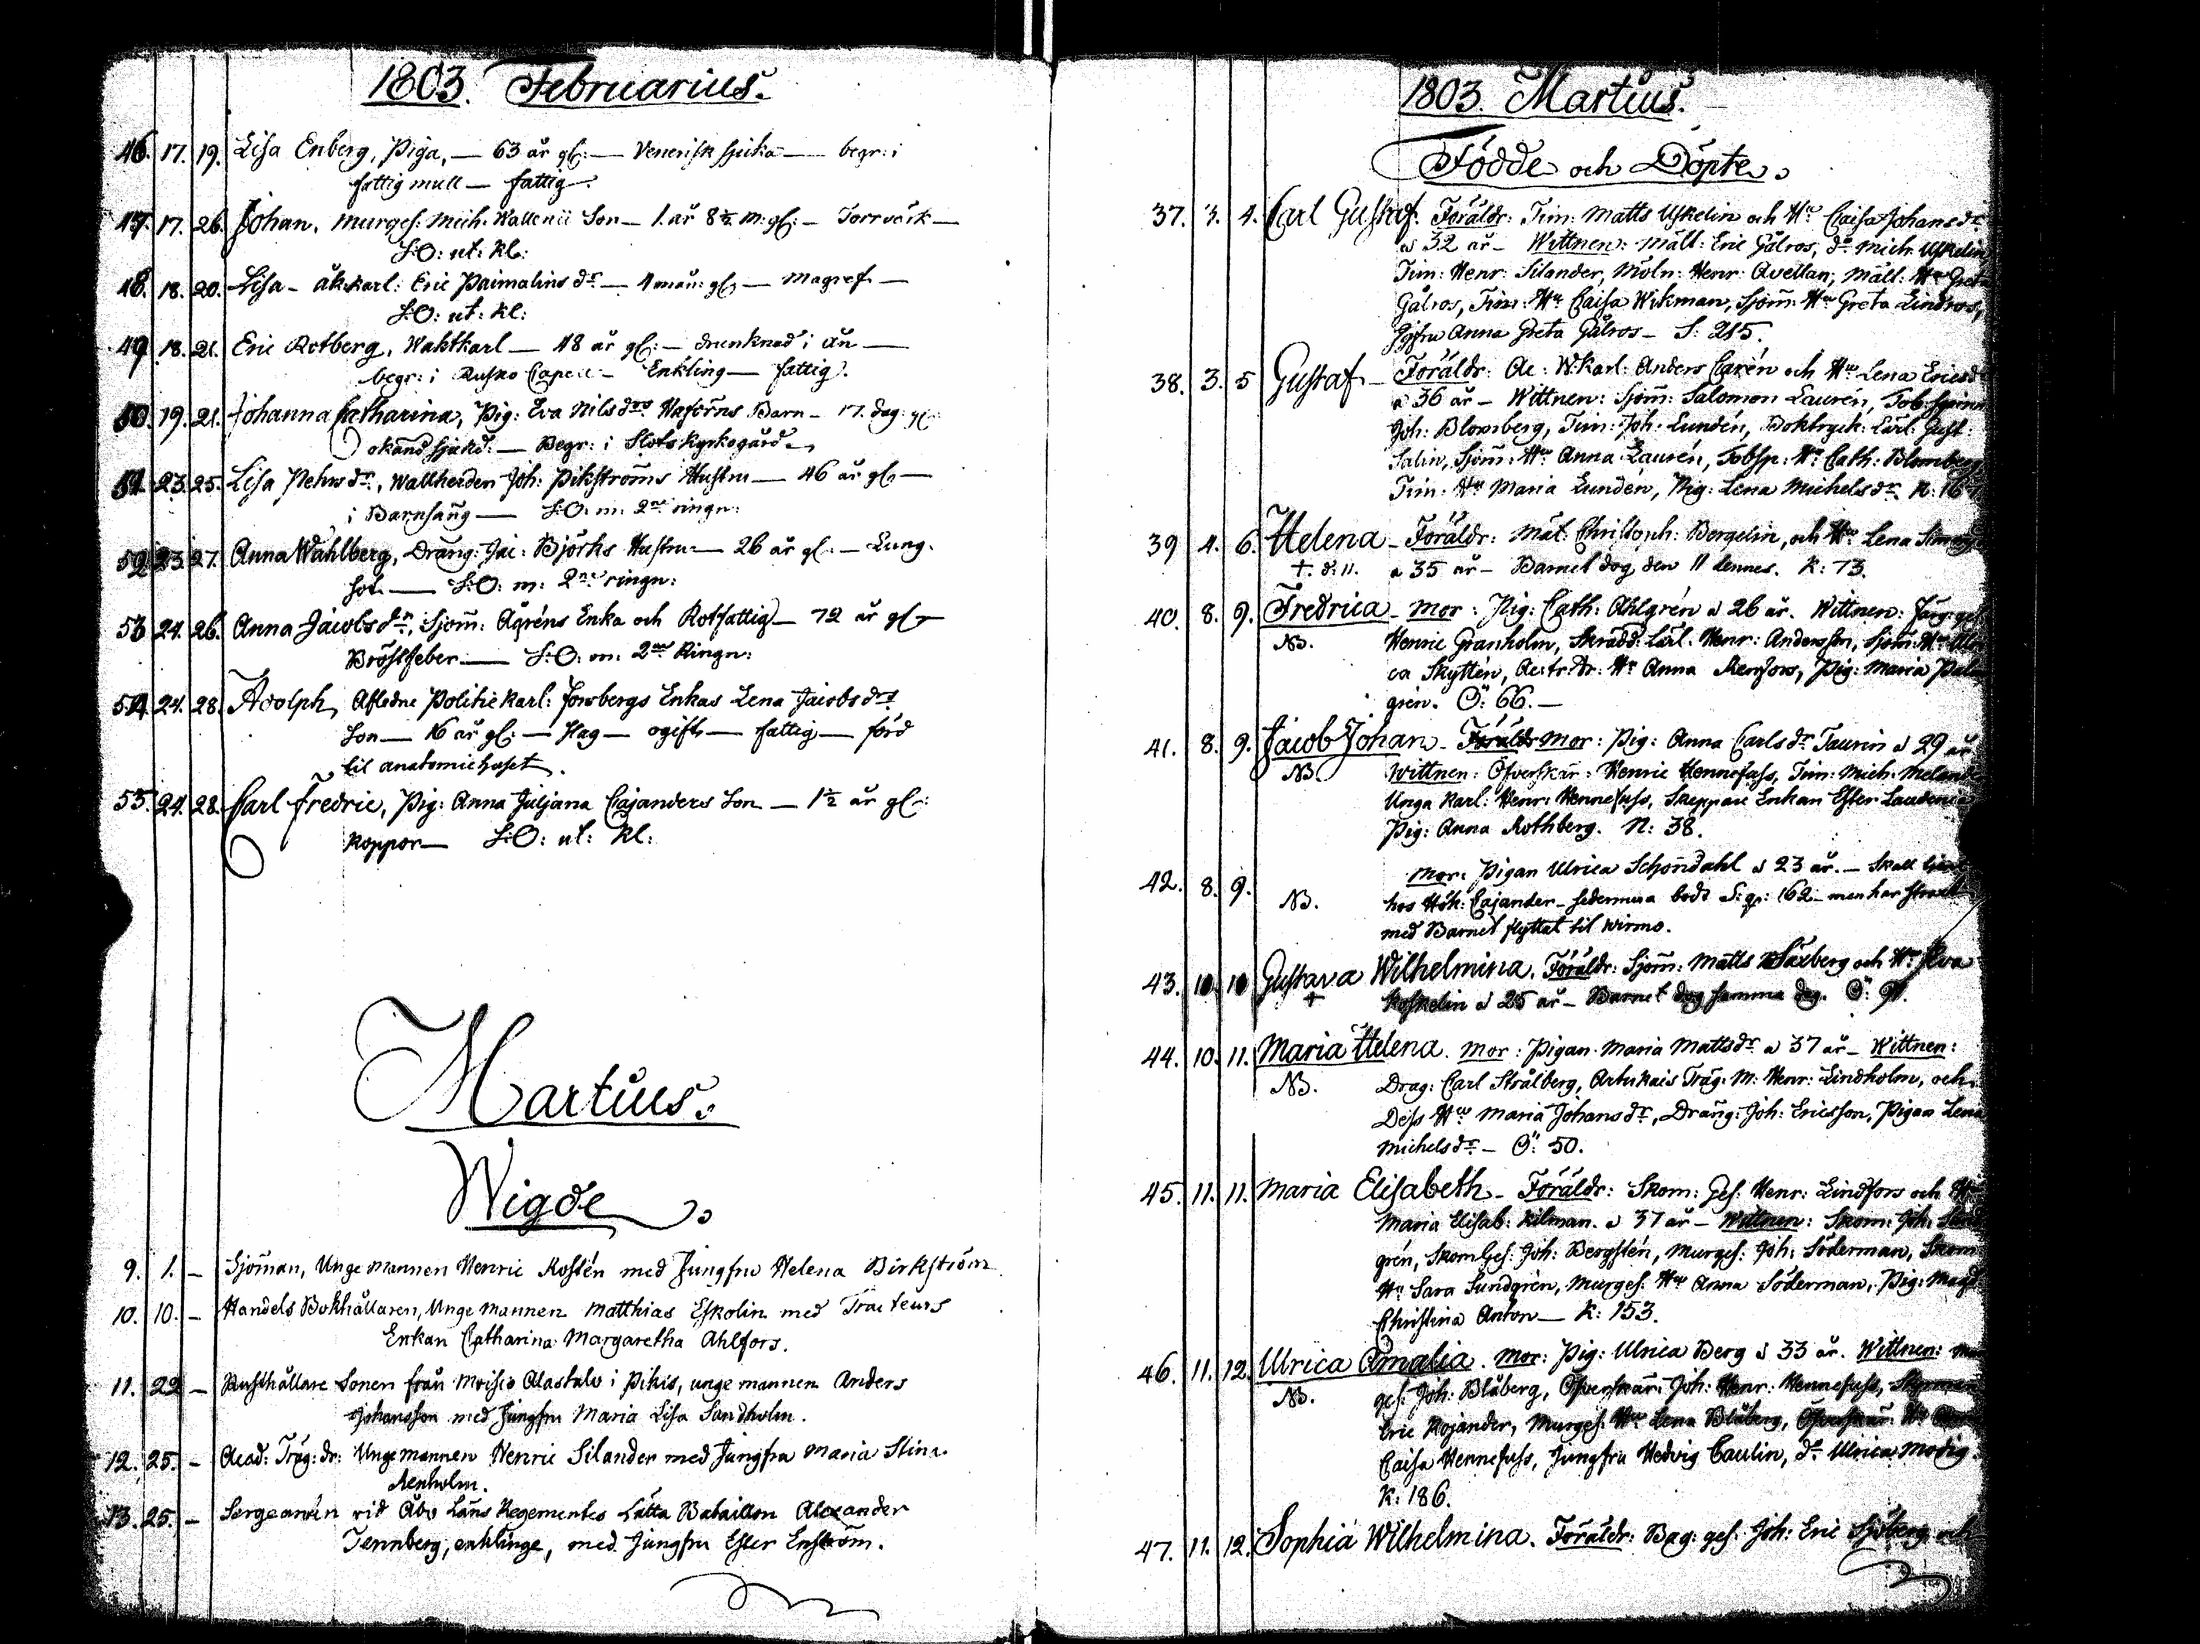 1803. Februarius.
46. 17. 19. Lisa Enberg, Piga, — 63 år gl: — Venerisk sjuka — begr: i
fattig mull — fattig.
47. 17. 26. Johan, Murges: Mich. Wallenii Son — 1. år 8½ m: gl: — Torrvärk —
S:O: ut: kl:
48. 18. 20. Lisa — åk:karl: Eric Paimalins dr — 4 mån: gl: — Magref —
S:O: ut: kl:
49. 18. 21. Eric Rotberg, Waktkarl — 48 år gl: — drunknad i ån —
begr: i Rusko Capell — Enkling — fattig.
50. 19. 21. Johanna Catharina, Pig: Eva Nilsdrs Barn — 17. dag: gl:
okänd sjukd: — Begr: i Slots kyrkogård —
51. 23. 25. Lisa Pehrsdr, Wallherden Joh: Pikströms Hustru — 46 år gl: —
i Barnsäng — S:O: m: 2ne ringn:
52. 23. 27. Anna Wahlberg, Dräng: Jac: Björks Hustru — 26 år gl: — Lung-
sot. — S:O: m: 2ne ringn:
53. 24. 26. Anna Jacobsdr, Sjöm: Ågréns Enka och Rotfattig — 72 år gl: —
Bröstfeber — S:O: m: 2ne Ringn:
54. 24. 28. Adolph, Afledne Politiekarl: Forsbergs Enkas Lena Jacobsdrs
Son — 16 år gl: — Slag — ogift — fattig — förd
til anatomiehuset.
55. 24. 28. Carl Fredric, Pig: Anna Juljana Cajanders Son — 1½ år gl:
koppor — S:O: ut: kl:
Martius.
Wigde
9. 1. — Sjöman, Unge mannen Henric Rostén med Jungfru Helena Birkström
10. 10. — Handels Bokhållaren, Unge mannen Matthias Eskolin med Tracteurs
Enkan Catharina Margaretha Ahlfors.
11. 22 — Rusthållare Sonen från Moisio Alastalo i Pikis, unge mannen Anders
Johansson med Jungfru Maria Lisa Sandholm.
12. 25. — Acad: Träg: dr: Unge mannen Henric Silander med Jungfru Maria Stina
Renholm.
13. 25. — Sergeanten vid Åbo Läns Regementes Lätta Bataillon Alexander
Tennberg, enklinge, med Jungfru Ester Enström.
1803. Martius.
Födde och Döpte.
37. 3. 4. Carl Gustaf. Föräldr: Tim: Matts Uskelin och Hu Caisa Johansdr
a 32 år — Wittnen: Mält: Eric Gålros, do Mich: Uskelin
Tim: Henr: Silander, Möln: Henr: Avellan, Mält: Hu Greta
Gålros, Tim: Hu Caisa Wikman, Sjöm: Hu Greta Lindros,
Jgfru Anna Greta Gålros — S: 215.
38. 3. 5 Gustaf — Föräldr: Ac: W:karl: Anders Carén och Hu Lena Ericsdr
a 36 år — Wittnen: Sjöm: Salomon Laurén, Tob:spinn
Joh: Blomberg, Tim: Joh: Lundén, Boktryck: Lärl: Gust:
Salin, Sjöm: Hu Anna Laurén, Tobsp: Hu Cath: Blomberg
Tim: Hu Maria Lundén, Pig: Lena Michelsdr K: 167
39 4. 6. Helena — Föräldr: Mat: Christoph: Borgelin, och Hu Lena
†. d: 11. a 35 år — Barnet dog den 11 hennes. K: 73.
40. 8. 9. Fredrica — Mor: Pig: Cath: Ahlgrén a 26 år. Wittnen: Färg:ges
NB. Henric Granholm, Skrädd: Lärl: Henr: Andersson, Sjöm: Hu Ulri
ca Skyttén, Ac:tr:dr: Hu Anna Renfors, Pig: Maria Palm
grén. Ö: 66. —
41. 8. 9. Jacob Johan — Föräldr Mor: Pig: Anna Carlsdr Taurin a 29 år
NB. Wittnen: Öfverskär: Henric Hennefuss, Tim: Mich: Meland
Unga karl: Henr: Hennefuss, Skeppare Enkan Ester
Pig: Anna Rothberg. N: 38.
42. 8. 9. Mor: Pigan Ulrica Schöndahl a 23 år. — Skall
NB. hos Hök: Cajander — sedermera bodt S: q: 162 — men har straxt
med Barnet flyttat til Wirmo.
43. 10 10 Gustava Wilhelmina. Föräldr: Sjöm: Matts Saxberg och Hu
† Koskelin a 25 år — Barnet dog samma dag. Ö: 91.
44. 10. 11. Maria Helena. Mor: Pigan Maria Mattsdr a 37 år — Wittnen:
NB. Drag: Carl Strålberg, Artukais Träg: M: Henr: Lindholm, och
Dess Hu Maria Johansdr, Dräng: Joh: Ericsson, Pigan Lena
Michelsdr — Ö: 50.
45. 11. 11. Maria Elisabeth — Föräldr: Skom: Ges: Henr: Lindfors och Hu
Maria Elisab: Kilman. a 37 år — Wittnen: Skom: Joh:
grén, Skom Ges: Joh: Bergstén, Murges: Joh: Söderman, Skom
Hu Sara Sundgrén, Murges: Hu Anna Söderman, Pig: Magd
Christina Anton — K: 153.
46. 11. 12. Ulrica Amalia. Mor: Pig: Ulrica Berg a 33 år. Wittnen: Mur
NB. ges: Joh: Blåberg, Öfverskär: Joh: Henr: Hennefuss,
Eric Rojander, Murges: Hu Lena Blåberg, Öfverskär: Hu
Caisa Hennefuss, Jungfru Hedvig Caulin, do Ulrica Modig.
K: 186.
47. 11. 12. Sophia Wilhelmina. Föräldr: Bag: ges: Joh: Eric Sjöberg och